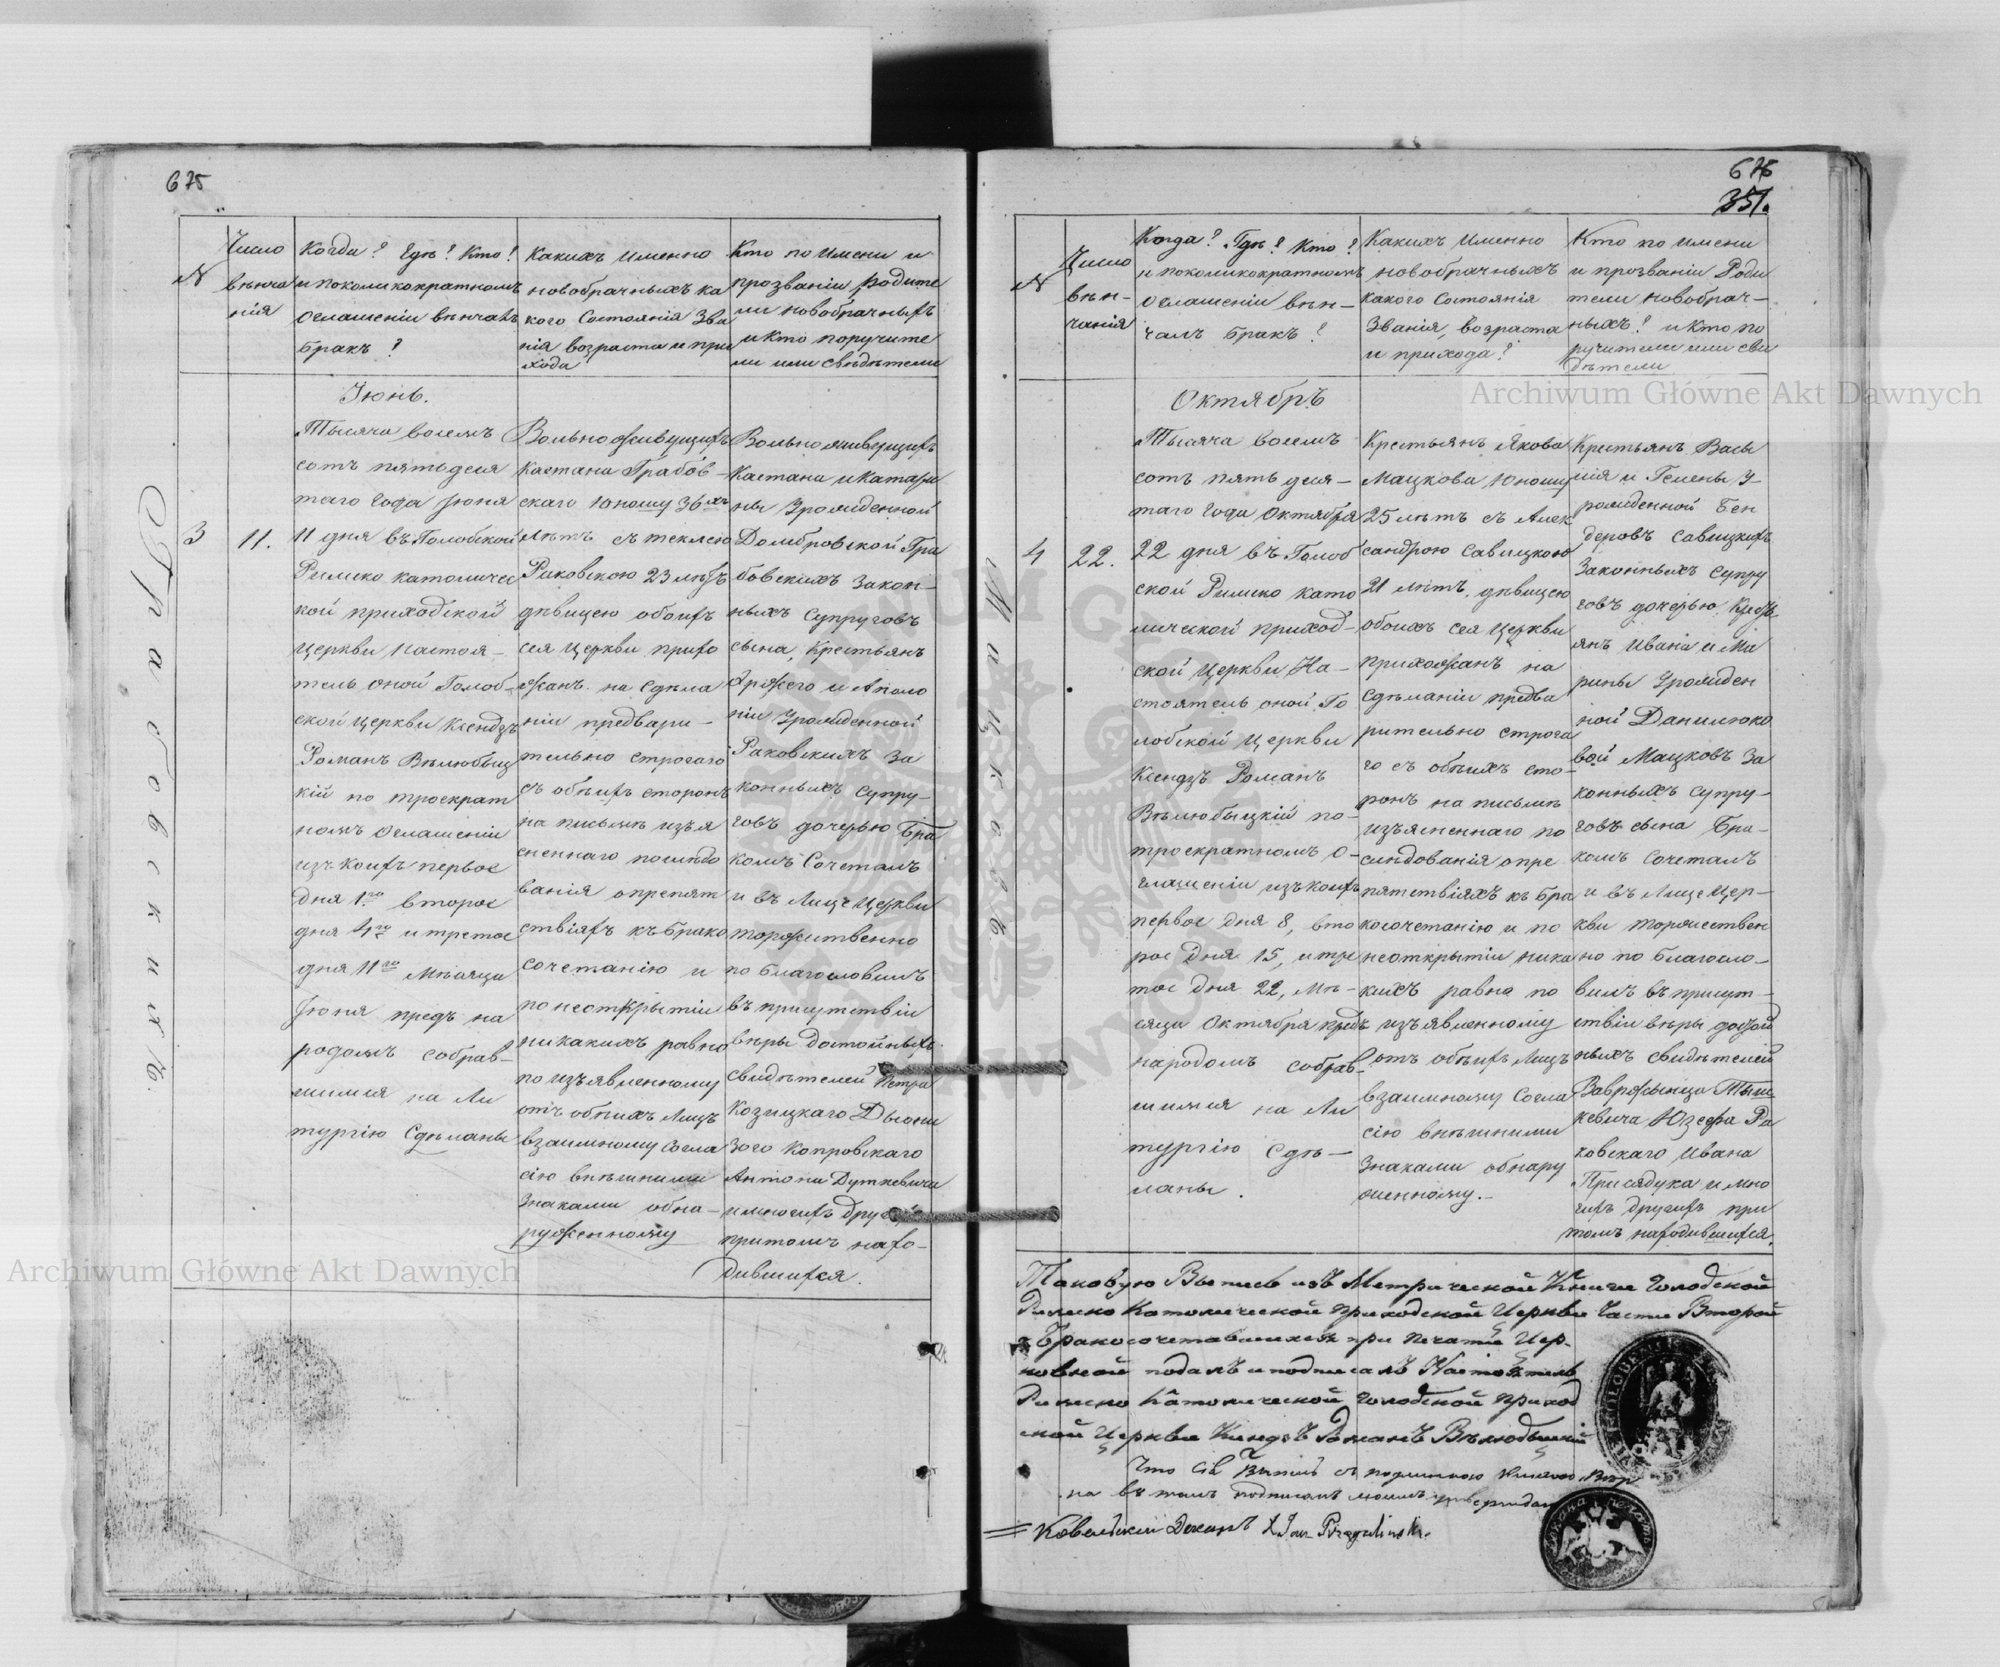 675
№
Число
вѣнча
нія
Когда? Гдѣ? Кто?
и поколикократномъ
оглашеніи вѣнчалъ
бракъ?
Какихъ именно
новобрачныхъ ка
кого состоянія зва
нія возраста и при
хода
Кто по имени и
прозванію родите
ли новобрачныхъ
и кто поручите
ли или свѣдѣтели
Грабовскихъ.
3
11.
Іюнь.
Тысяча восемъ
сотъ пятьдеся
таго года Іюня
11 дня въ Голобской
Римско католичес
кой приходской
церкви настоя-
тель оной Голоб-
ской церкви Ксендзъ
Романъ Вѣлюбыц
кій по троекрат
номъ оглашеніи
изъ коихъ первое
дня 1го второе
дня 4го и третое
дня 11го мѣсяца
Іюня предъ на
родомъ собрав-
шимся на Ли
тургію сдѣланы
Вольноживущихъ
Каетана Грабов-
скаго юношу 36хъ
лѣтъ съ теклею
Раковскою 23 лѣтъ
дѣвицею обоихъ
сея церкви прихо
жанъ. на сдѣла
ніи предвари-
тельно строгаго
съ обѣихъ сторонъ
на письмѣ изъя
сненнаго послѣдо
ванія опрепят
ствіяхъ къ брако
сочетанію и
по неоткрытіи
никакихъ равно
по изъявленному
отъ обѣихъ лицъ
взаимному согла
сію внѣшними
знаками обна-
руженному
Вольноживущихъ
Каетана и Катари
ны урожденной
Домбровской Гра
бовскихъ закон-
ныхъ супруговъ
сына, Крестьянъ
и Аполо
ніи урожденной
Раковскихъ за
конныхъ супру-
говъ дочерью бра
комъ сочеталъ
и въ лице церкви
торжественно
по благословилъ
въ присутствіи
вѣры достойныхъ
свидѣтелей Петра
Козицкаго Діони
зого Копровскаго
Антони Дуткевича
и многихъ другихъ
притомъ нахо-
дившихся.
676
351.
№
Число
вѣн-
чанія
Когда? Гдѣ? Кто?
и поколикократномъ
оглашеніи вѣн-
чалъ бракъ?
Какихъ именно
новобрачныхъ
какого состоянія
званія, возраста
и прихода?
Кто по имени
и прозваніи Роди
тели новобрач-
ныхъ? и кто по
ручители или сви
дѣтели
Мацковъ.
4
22.
Октябръ
Тысяча восемъ
сотъ пять деся-
таго года Октября
22 дня въ Голоб
ской Римско като
лической приход-
ской церкви На-
стоятель оной Го
лобской церкви
Ксендзъ Романъ
Вѣлюбыцкій по-
троекратномъ о-
глашеніи изъ коихъ
первое дня 8, вто
рое дня 15, и тре
тое дня 22, мѣ-
сяца Октября предъ
народомъ собрав-
шимся на Ли
тургію сдѣ-
ланы.
Крестьянъ Якова
Мацкова юношу
25 лѣтъ съ Алек
сандрою Савицкою
21 лѣтъ, дѣвицею
обоихъ сея церкви
прихожанъ на
сдѣланіи предва
рительно строга
го съ обѣихъ сто-
ронъ на письмѣ
изъясненнаго по
слѣдованія опре
пятствіяхъ къ бра
косочетанію и по
неоткрытіи ника
кихъ равно по
изъявленному
отъ обѣихъ лицъ
взаимному согла
сію внѣшними
знаками обнару
женному.-
Крестьянъ Васы
лія и Гелены у-
рожденной Бен
деровъ Савицкихъ
законныхъ супру
говъ дочерью, Кресть
янъ Ивана и Ма
рины урожден
ной Данилюко
вой Мацковъ за
конныхъ супру-
говъ сына бра-
комъ сочеталъ
и въ лице цер-
кви торжествен
но по благосло-
вилъ въ присут-
ствіи вѣры достой
ныхъ свидѣтелей
Вавржынца Тыш
кевича Юзефа Ра
ковскаго Ивана
Присядука и мно
гихъ другихъ при
томъ находившихся.
Таковую Выпись изъ Метрической Книги Голобской
Римско Католической приходской Церкви Части Второй
о Бракосочетавшихся при печати Цер-
ковной подалъ и подписалъ Настоятель
Римско Католической Голобской приход
ской Церкви Ксендзъ Романъ Вѣлюбыцкій
Что сія Выпись съ подлинною Книгою вѣр
на въ томъ подписомъ моимъ утверждаю
Ковельскій Деканъ X Jan Przegaliński
Archiwum Główne Akt Dawnych
Archiwum Główne Akt Dawnych